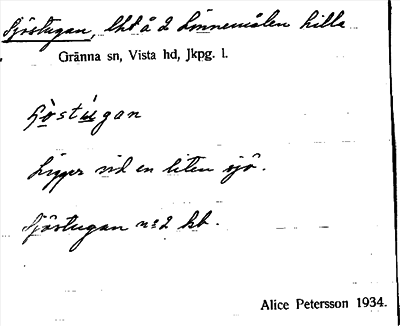 Sjöstugan, lht å 2 Linnemålen lilla
Gränna sn, Vista hd, Jkpg. l.
stugan
Ligger vid en liten sjö.
Sjöstugan nº 2 kt.
Alice Petersson 1934.